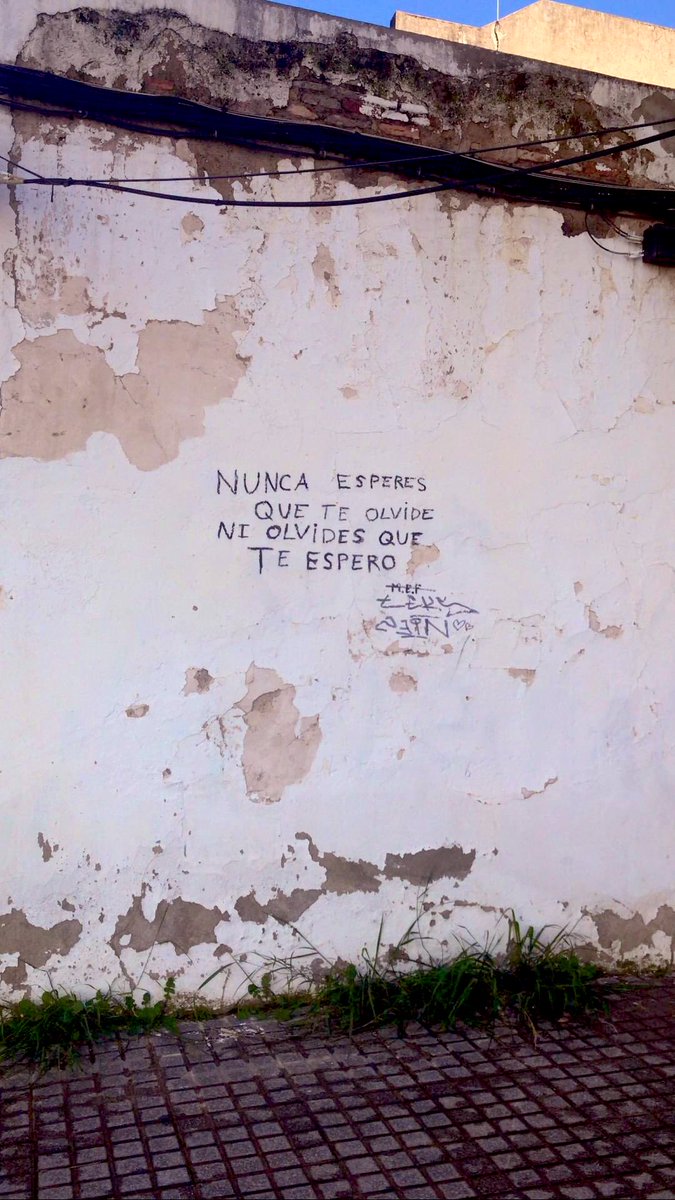 NUNCA ESPERES
QUE TE OLVIDE
NI OLVIDES QUE
TE ESPERO
M.E.F